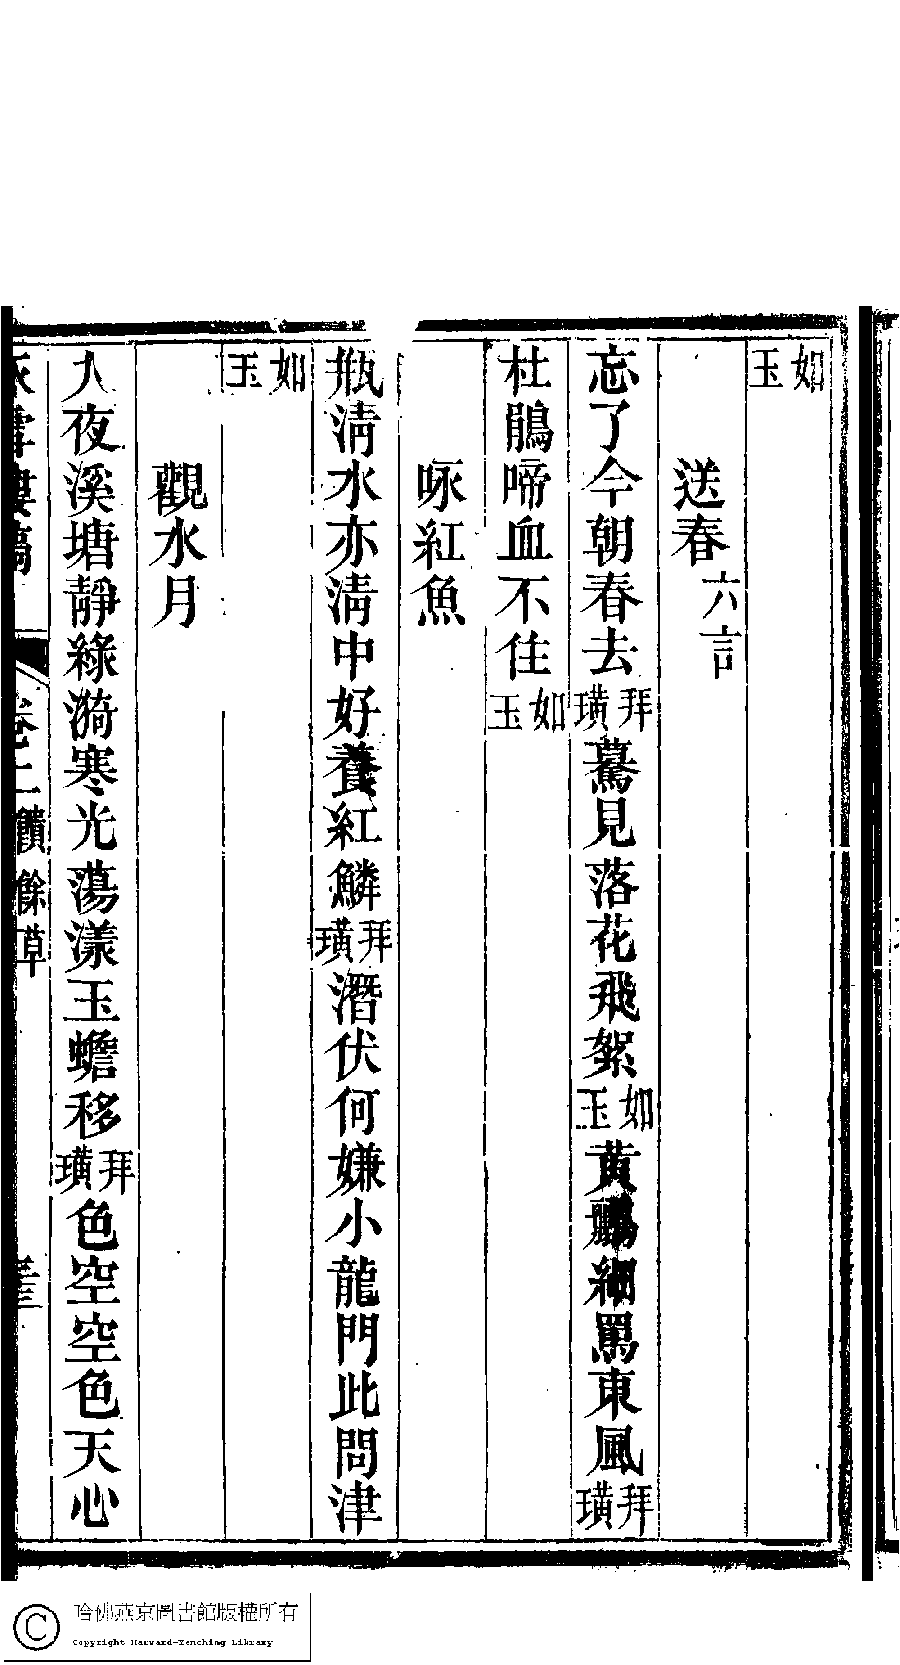 如玉
送春 六言
忘了今朝春去 拜璜 驀見落花飛絮 如玉 黃鸝細罵東風 拜璜
杜鵑啼血不住 如玉
咏紅魚
瓶淸水亦淸中好養紅鱗 拜璜 潛伏何嫌小龍門此問津
如玉
觀水月
入夜溪塘靜綠漪寒光蕩漾玉蟾移 拜璜 色空空色天心
咏雪樓稿 卷二饋餘草
哈佛燕京圖書館版權所有
Copyright Harvard-Yenching Library